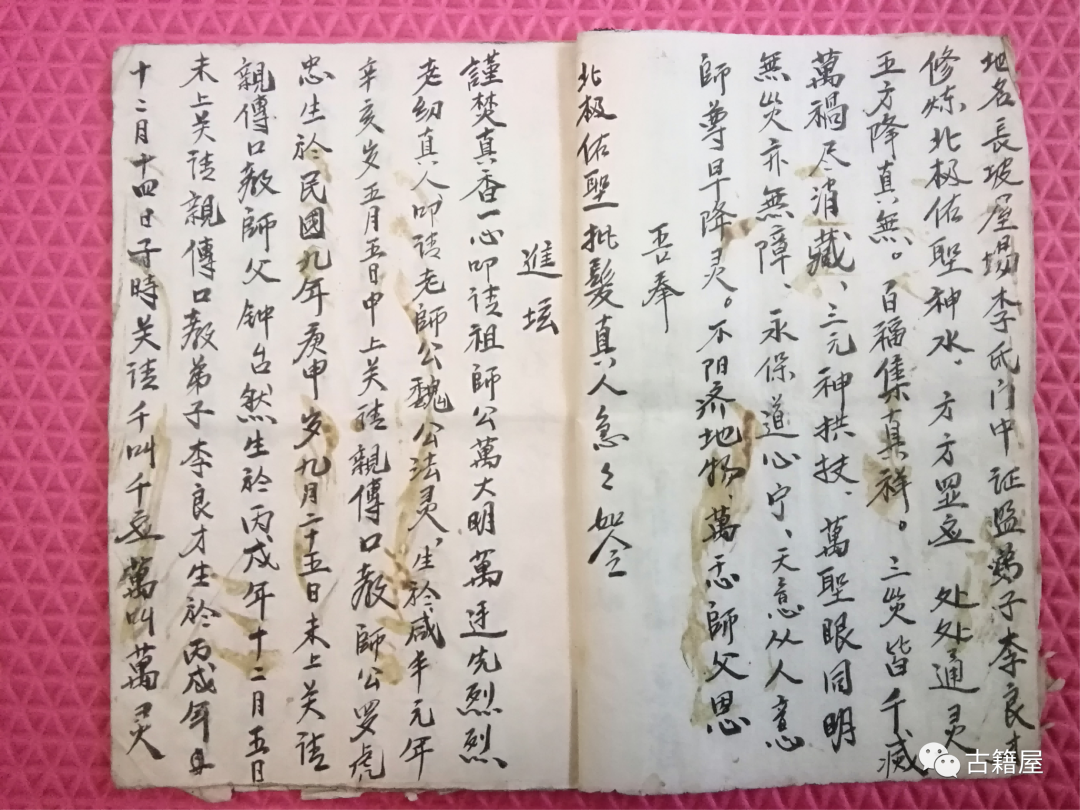 地名長坡屋場李氏门中証盟弟子李良才
修炼北极佑聖神水、方方置立 处处通灵
五方降真無。百福集真祥。三災皆千滅
萬禍尽消藏、三元神拱扶、萬聖眼同明
無災亦無障、永保道心宁、天意从人意
師尊早降灵。不阳济地物、萬忘師父恩
吾奉
北极佑聖批髮真人急々如令
進坛
謹焚真香一心叩请祖師公萬大明萬廷先烈烈
老幼真人叩请老師公魏公法灵、生於咸半元年
辛亥岁五月五日中上关请親傳口教師公罗虎
忠生於民國九年庚申岁九月二十五日未上关请
親傳口教師父钟台然生於丙戍年十二月五日
未上关请親傳口教弟子李良才生於丙戍年
十二月十四日子時关请千叫千应萬叫萬灵
古籍屋